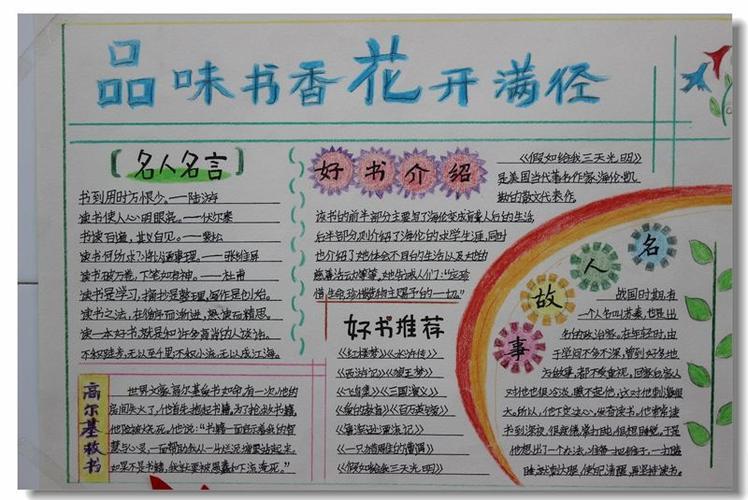 品味书香花开满径
【名人名言】
书到用时方恨少。——陆游
读书使人心明眼亮。——伏尔泰
书读百遍，其义自见。
读书破万卷，下笔如有神。——杜甫
读书之法，在循序而渐进，熟读而精思。
不积跬步，无以至千里；不积小流，无以成江海。
高尔基救书
世界文豪高尔基爱书如命，有一次，他的
房间失火了，他首先抱起书籍，为了抢救书籍，
他险被烧死。他说："书籍一面启示着我的智
慧与心灵，一面帮助我从一片烂泥塘里站起来，
如果不是书籍，我就要被愚蠢和下流淹死。"
好书介绍
《假如给我三天光明》
是美国当代著名作家海伦·凯
勒的散文代表作。
该书的前半部分主要写了海伦变成盲聋人后的生活，
后半部分则介绍了海伦的求学生涯，同时
也介绍了她体会不同的生活以及她的
慈善活动等等，她告诫人们："应珍
惜生命，珍惜造物主赐予的一切。"
好书推荐
《红楼梦》《水浒传》
《西游记》
《三国演义》
《鲁滨逊漂流记》
《假如给我三天光明》
名人故事
战国时期，有
一个人名叫苏秦，也是出
名的政治家。在年轻时，由
于学问不多不深，曾到好多地
方做事，都不受重视。回家后，家人
对他也很冷淡，瞧不起他，这对他刺激很
大。所以，他下定决心，发奋读书。他常常读
书到深夜，很疲倦，常打盹，很想睡觉。于是
他想出了一个办法，准备一把锥子，一打瞌
睡，就刺大腿，使自己清醒，再坚持读书。